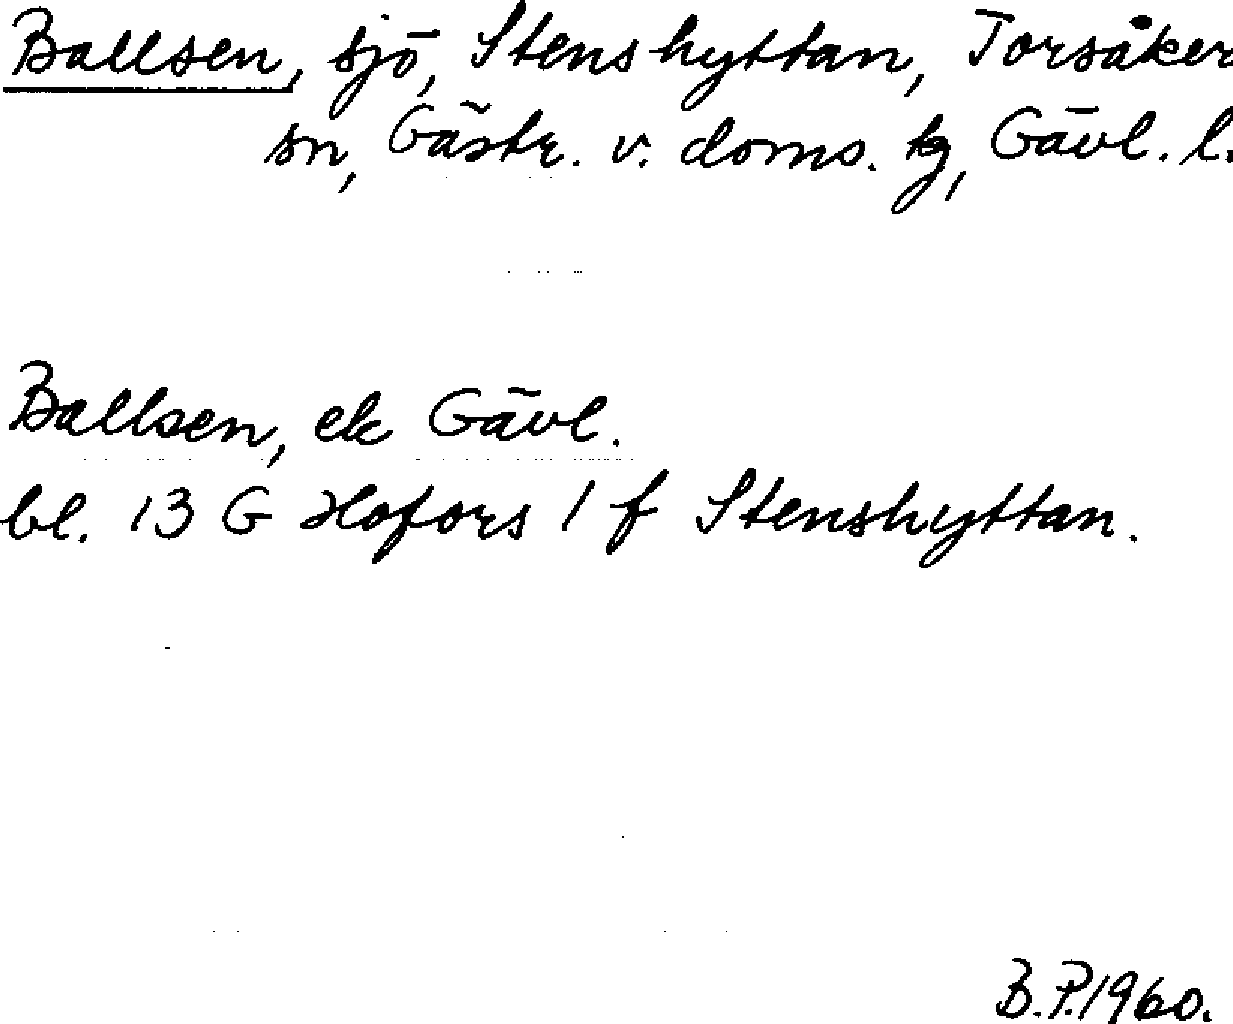 Ballsen, sjö, Stenshyttan, Torsåker
sn, Gästr. v. doms. tg, Gävl. l.
Ballsen, ek Gävl.
bl. 13 G Hofors 1 f Stenshyttan.
B.P.1960.